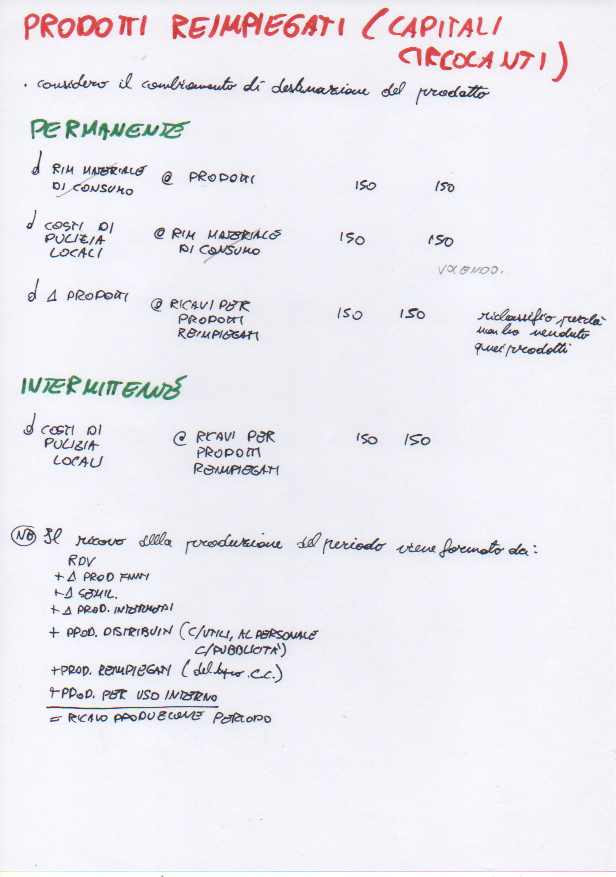 PRODOTTI REIMPIEGATI (CAPITALI
CIRCOLANTI)
. considero il cambiamento di destinazione del prodotto
PERMANENTE
d RIM MATERIALE DI CONSUMO @ PRODOTTI 150 150
d COSTI DI PULIZIA LOCALI @ RIM MATERIALE DI CONSUMO 150 150
VOLENDO.
d Δ PRODOTTI @ RICAVI PER PRODOTTI REIMPIEGATI 150 150
riclassifico perché
non ho venduto
quei prodotti
INTERMITTENTE
d COSTI DI PULIZIA LOCALI @ RICAVI PER PRODOTTI REIMPIEGATI 150 150
NB Il ricavo della produzione del periodo viene formato da:
RDV
+ Δ PROD FINITI
+ Δ SEMIL.
+ Δ PROD. INTERMEDI
+ PROD. DISTRIBUITI (C/UTILI, AL PERSONALE
C/PUBBLICITÀ)
+ PROD. REIMPIEGATI (del tipo C.C.)
+ PROD. PER USO INTERNO
= RICAVO PRODUZIONE PERIODO